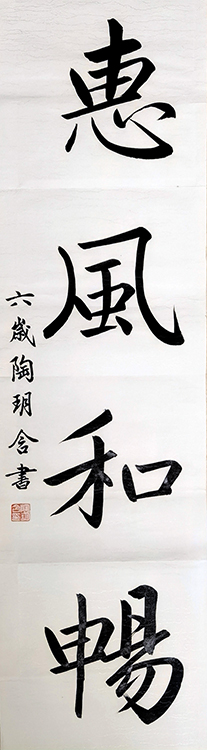 惠風和暢
六歲陶玥含書